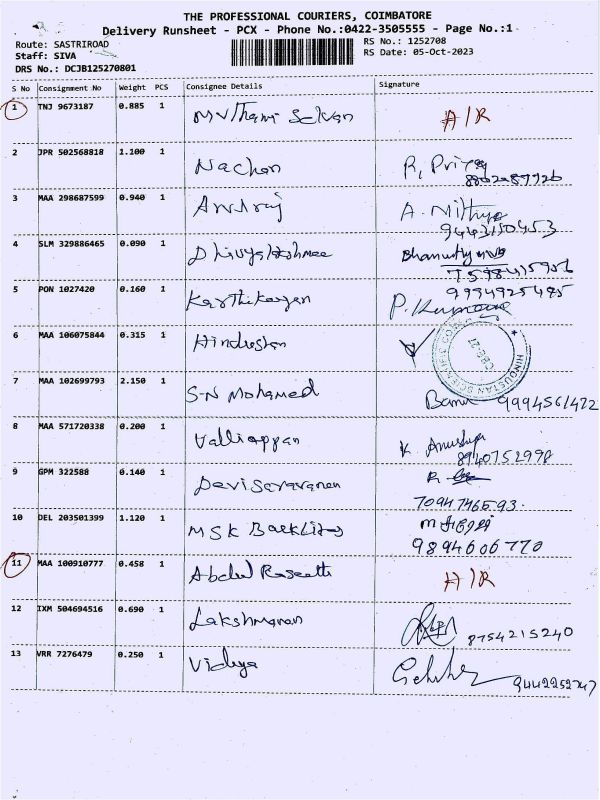 THE PROFESSIONAL COURIERS, COIMBATORE
Delivery Runsheet - PCX - Phone No.:0422-3505555 - Page No.:1
Route: SASTRIROAD
Staff: SIVA
DRS No.: DCJB125270801
RS No.: 1252708
RS Date: 05-Oct-2023
S No Consignment No Weight PCS Consignee Details Signature
1 TNJ 9673187 0.885 1 A/R
2 JPR 502568818 1.100 1 Nachan R. Priya
3 MAA 298687599 0.940 1 A. Nithya
9443150453
4 SLM 329886465 0.090 1
5 PON 1027420 0.160 1 Karthikeyan 9994925495
6 MAA 106075844 0.315 1 Hindustan HINDUSTAN SCIENTIFIC
7 MAA 102699793 2.150 1 S-N Mohamed 9994561422
8 MAA 571720338 0.200 1 Valliappan K. Anushya
8940752998
9 GPM 322588 0.140 1 Devisaravanan R.
7094746593.
10 DEL 203501399 1.120 1 MSK
9894606770
11 MAA 100910777 0.458 1 Abdul A/R
12 IXM 504694516 0.690 1 Lakshmanan 8754215240
13 VRR 7276479 0.250 1 Vidhya 9442252747